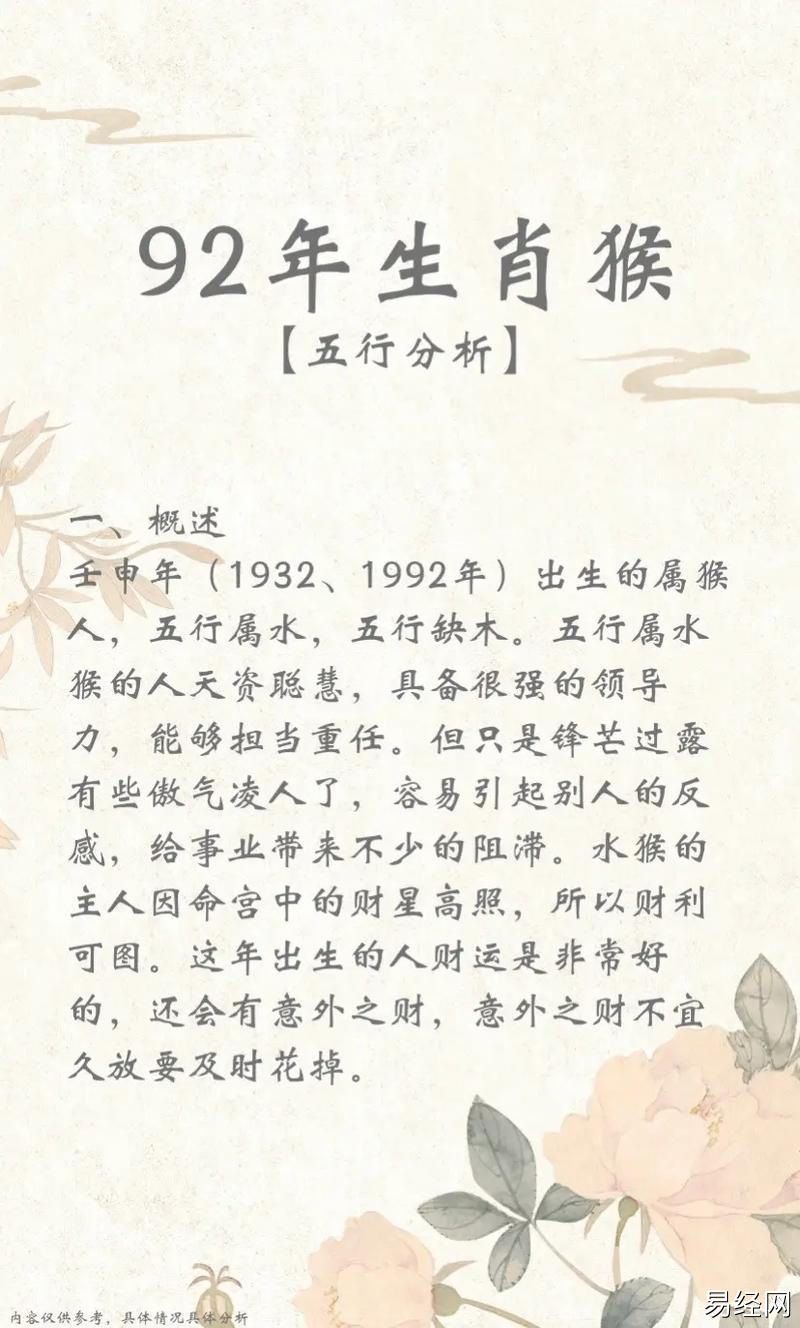 92年生肖猴
【五行分析】
一、概述
壬申年（1932、1992年）出生的属猴
人，五行属水，五行缺木。五行属水
猴的人天资聪慧，具备很强的领导
力，能够担当重任。但只是锋芒过露
有些傲气凌人了，容易引起别人的反
感，给事业带来不少的阻滞。水猴的
主人因命宫中的财星高照，所以财利
可图。这年出生的人财运是非常好
的，还会有意外之财，意外之财不宜
久放要及时花掉。
内容仅供参考，具体情况具体分析
易经网